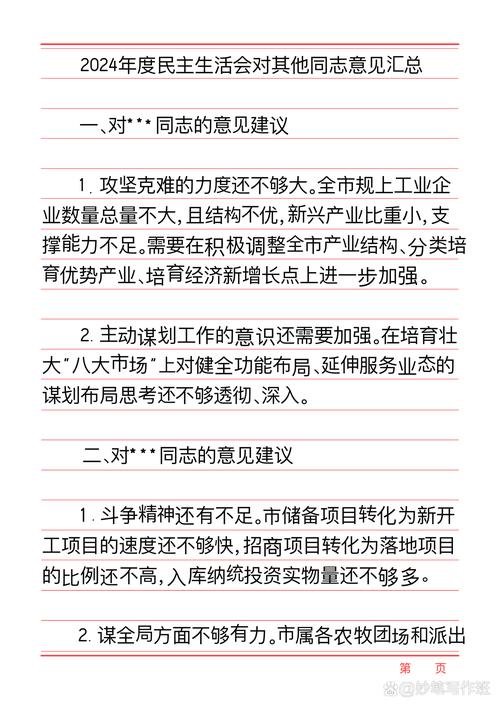 2024年度民主生活会对其他同志意见汇总
一、对***同志的意见建议
1. 攻坚克难的力度还不够大。全市规上工业企
业数量总量不大,且结构不优,新兴产业比重小,支
撑能力不足。需要在积极调整全市产业结构、分类培
育优势产业、培育经济新增长点上进一步加强。
2. 主动谋划工作的意识还需要加强。在培育壮
大“八大市场”上对健全功能布局、延伸服务业态的
谋划布局思考还不够透彻、深入。
二、对***同志的意见建议
1. 斗争精神还有不足。市储备项目转化为新开
工项目的速度还不够快,招商项目转化为落地项目
的比例还不高,入库纳统投资实物量还不够多。
2. 谋全局方面不够有力。市属各农牧团场和派出
第 页
@妙笔写作班